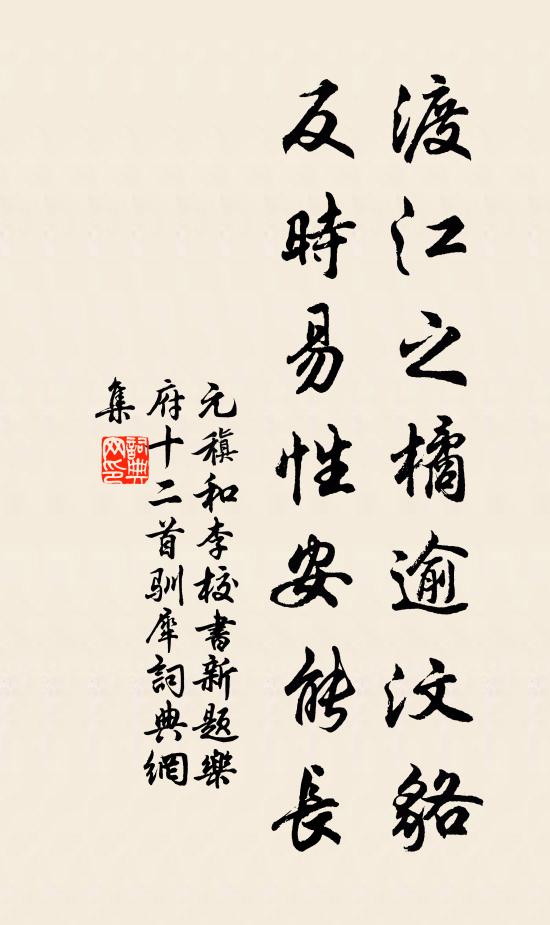 渡江之橘逾汶貉
反時易性安能長
元稹和李校書新題樂
府十二首馴犀詞典網
集
詞典
网